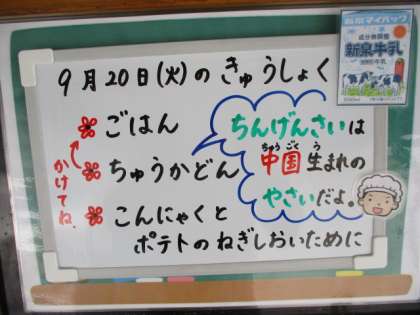 9月20日(火)のきゅうしょく
ごはん
ちゅうかどん
かけてね。
こんにゃくと
ポテトのねぎしおいために
ちんげんさいは
ちゅうごく う
中国生まれの
やさいだよ。
成分無調整
新泉牛乳